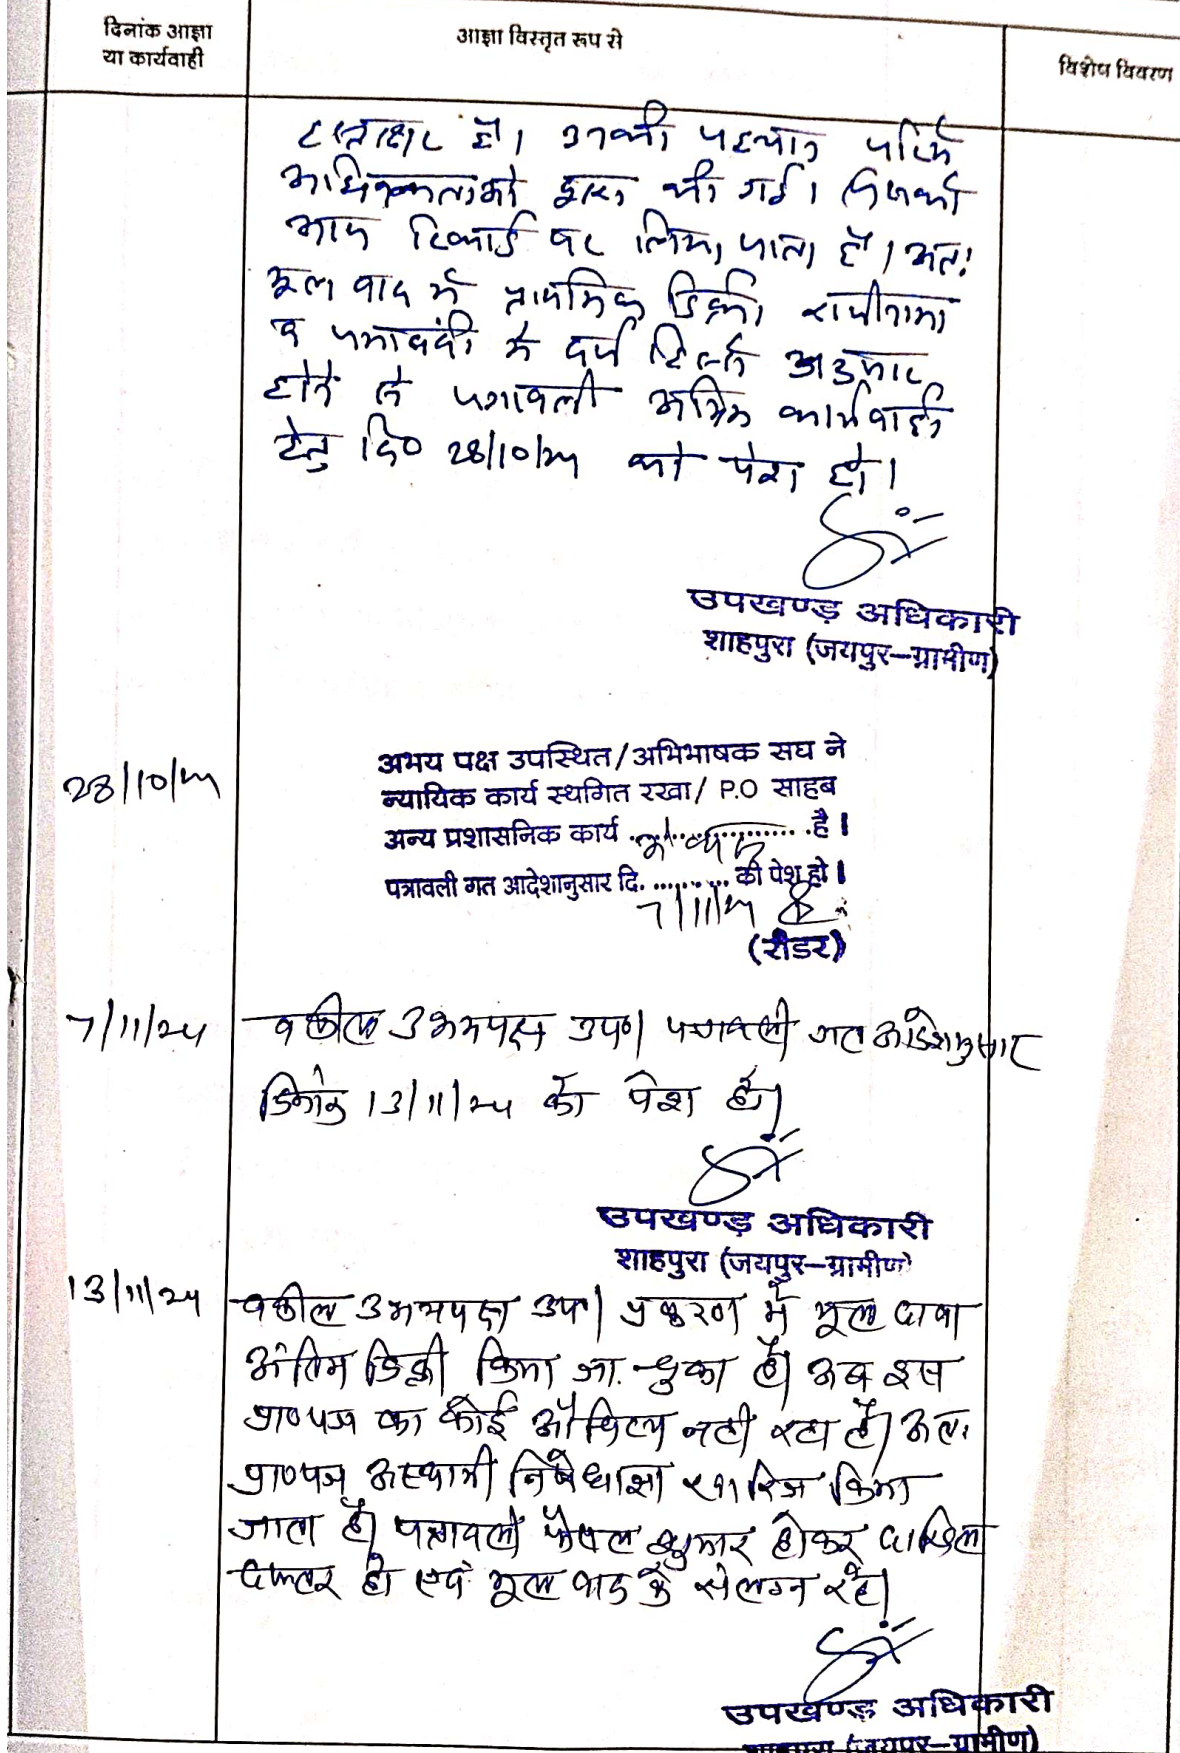 दिनांक आज्ञा
या कार्यवाही
आज्ञा विस्तृत रूप से
विशेष विवरण
हस्ताक्षर है। उनकी पहचान
अधिवक्ताओ द्वारा की गई। जिसको
रिकार्ड पर लिया जाता है। अतः
मूल वाद में प्राथमिक डिक्री राजीनामा
व जमाबंदी में दर्ज हिस्से अनुसार
होने से पत्रावली अग्रिम कार्यवाही
हेतु दि० 28/10/24 को पेश हो।
उपखण्ड अधिकारी
शाहपुरा (जयपुर-ग्रामीण)
28/10/24
अभय पक्ष उपस्थित/अभिभाषक सघ ने
न्यायिक कार्य स्थगित रखा/ P.O साहब
अन्य प्रशासनिक कार्य .................... है।
पत्रावली गत आदेशानुसार दि. 7/11/24 की पेश हो।
(रीडर)
7/11/24
वकील उभयपक्ष उप०। पत्रावली गत आदेशानुसार
दिनांक 13/11/24 को पेश हो।
उपखण्ड अधिकारी
शाहपुरा (जयपुर-ग्रामीण)
13/11/24
वकील उभयपक्ष उप०। प्रकरण में मूल दावा
अंतिम डिक्री किया जा चुका है। अब इस
प्रा०पत्र का कोई औचित्य नही रहा है। अतः
प्रा०पत्र अस्थायी निषेधाज्ञा खारिज किया
जाता है। पत्रावली फैसल शुमार होकर दाखिल
दफ्तर हो एवं मूल वाद के संलग्न रहे।
उपखण्ड अधिकारी
शाहपुरा (जयपुर-ग्रामीण)